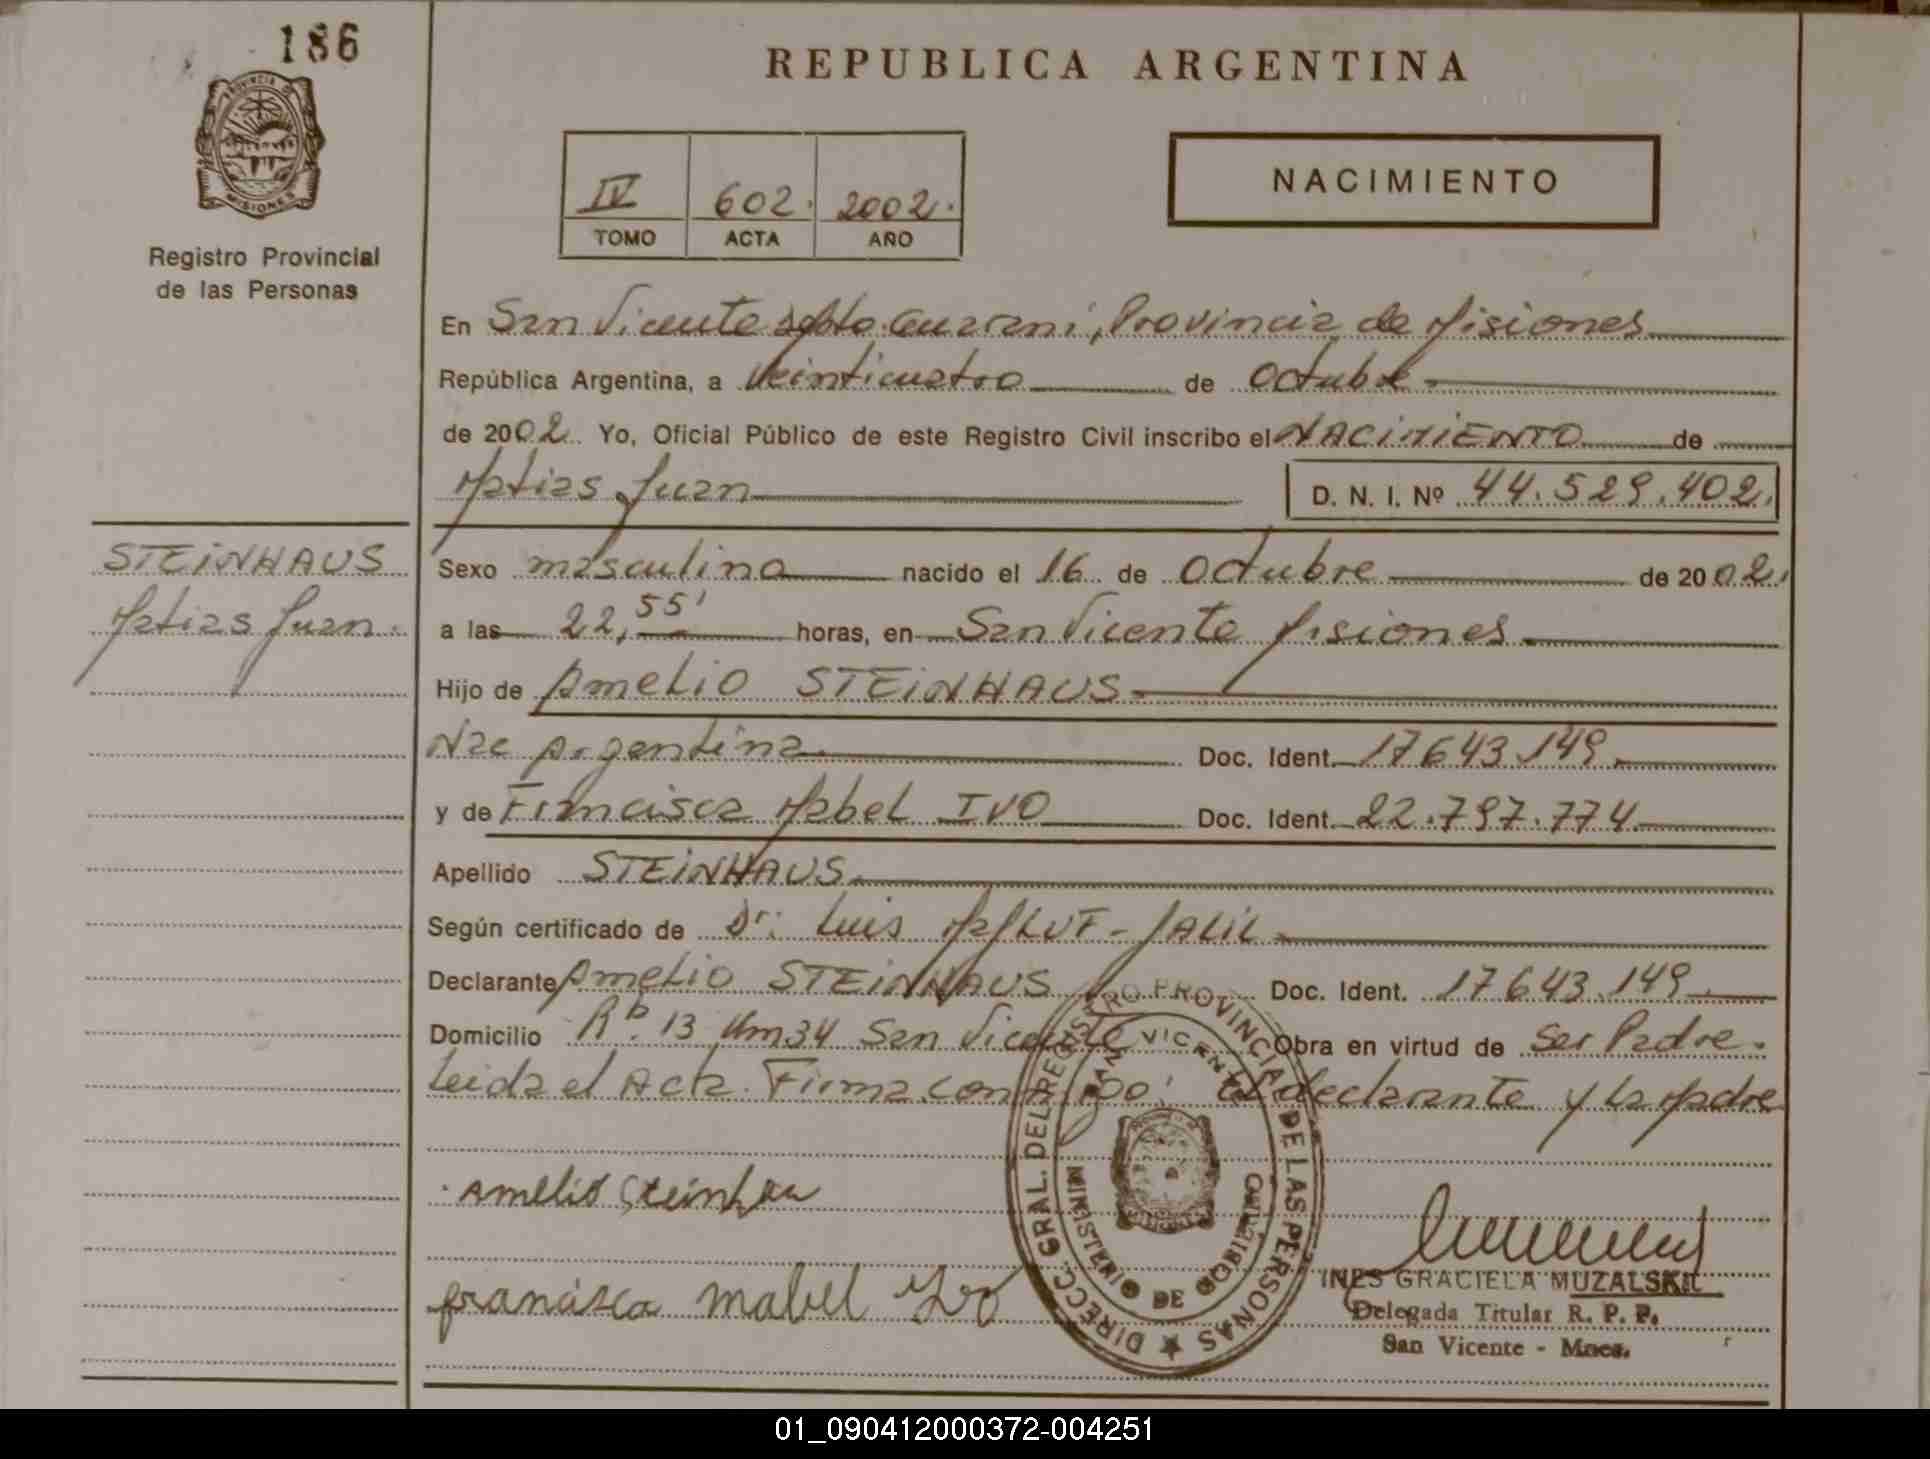 186
REPUBLICA ARGENTINA
PROVINCIA DE MISIONES
Registro Provincial
de las Personas
IV 602. 2002.
TOMO ACTA AÑO
NACIMIENTO
En San Vicente Dpto. Guaraní, Provincia de Misiones
República Argentina, a Veinticuatro de Octubre
de 2002. Yo, Oficial Público de este Registro Civil inscribo el NACIMIENTO de
Matias Juan
D. N. I. Nº 44.529.402.
STEINHAUS
Matias Juan.
Sexo masculino nacido el 16 de Octubre de 2002.
a las 22,55' horas, en San Vicente Misiones
Hijo de Amelio STEINHAUS
Nac Argentina Doc. Ident. 17643.149.
y de Francisca Mabel IVO Doc. Ident. 22.797.774
Apellido STEINHAUS
Según certificado de Dr: Luis - JALIL
Declarante Amelio STEINHAUS Doc. Ident. 17643.149
Domicilio Rª. 13 Km34 San Vicente Obra en virtud de Ser Padre.
Leida el Acta. Firma con el declarante y la Madre
Amelio Steinhau
francisca mabel Ivo
DIRECC. GRAL. DEL REGISTRO PROVINCIAL DE LAS PERSONAS
SAN VICENTE
MINISTERIO DE GOBIERNO
INES GRACIELA MUZALSKI
Delegada Titular R. P. P.
San Vicente - Mnes.
01_090412000372-004251